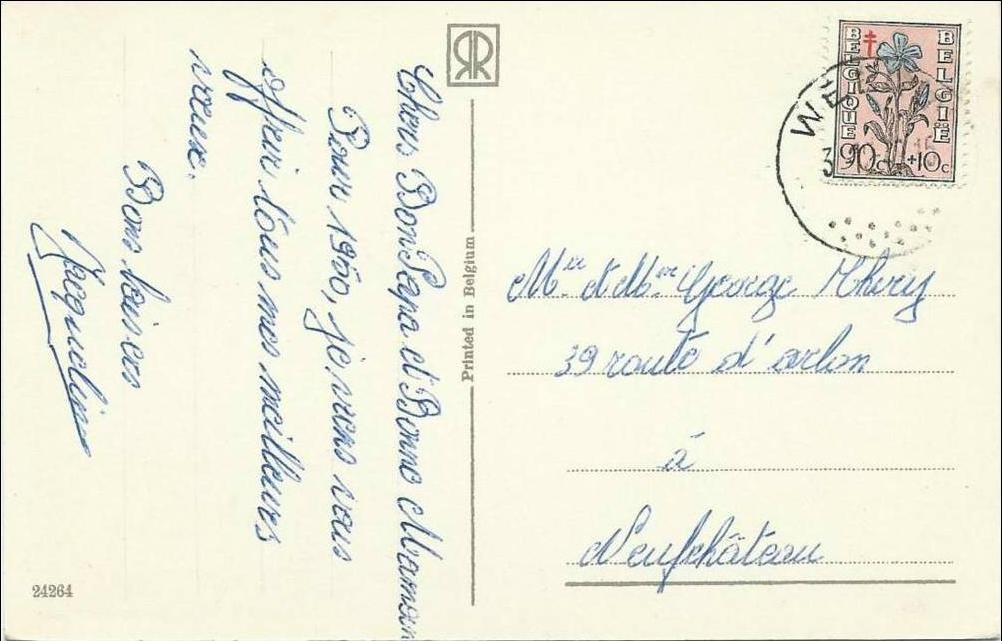 Chers Bon Papa et Bonne Maman
Pour 1960, je viens vous
offrir tous mes meilleurs
vœux.
Bons baisers
Jacqueline
24264
Printed in Belgium
BELGIQUE
BELGIË
90c +10c
WE
3
Mr. et Mme. George Thiry
39 route d'arlon
à
Neufchâteau